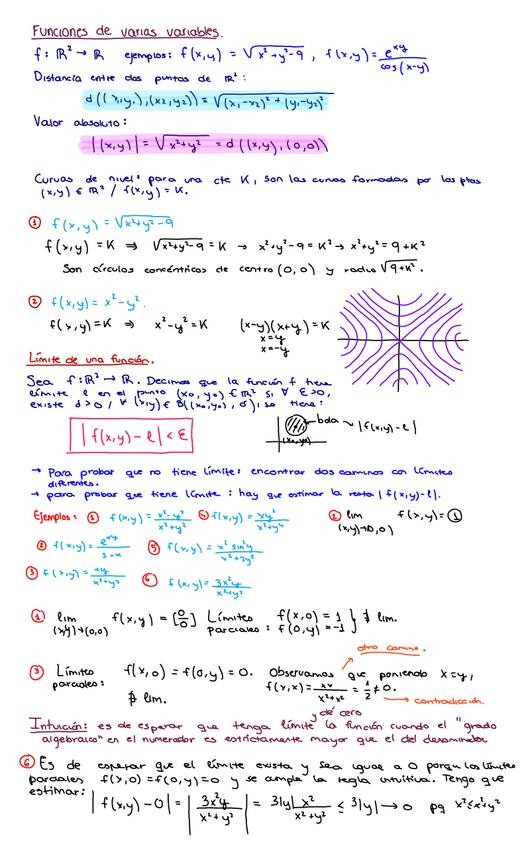 Funciones de varias variables.
f: ℝ² → ℝ ejemplos: f(x,y) = √(x²+y²-9) , f(x,y) = e^(xy)/cos(x-y)
Distancia entre dos puntos de ℝ²:
d((x₁,y₁),(x₂,y₂)) = √((x₁-x₂)² + (y₁-y₂)²)
Valor absoluto:
|(x,y)| = √(x²+y²) = d((x,y),(0,0))
Curvas de nivel: para una cte K, son las curvas formadas por los ptos
(x,y) ∈ ℝ² / f(x,y) = K.
① f(x,y) = √(x²+y²-9)
f(x,y) = K ⇒ √(x²+y²-9) = K → x²+y²-9 = K² → x²+y² = 9+K²
Son círculos concéntricos de centro (0,0) y radio √(9+K²).
② f(x,y) = x²-y².
f(x,y) = K ⇒ x²-y² = K (x-y)(x+y) = K
x=y
x=-y
Límite de una función.
Sea f: ℝ² → ℝ. Decimos que la función f tiene
límite l en el punto (x₀,y₀) ∈ ℝ² si ∀ ε>0,
existe d>0 / ∀ (x,y) ∈ B((x₀,y₀), δ), se tiene:
|f(x,y) - l| < ε
bola ~ |f(x,y)-l|
(x₀,y₀)
→ Para probar que no tiene límite: encontrar dos caminos con límites
diferentes.
→ para probar que tiene límite: hay que estimar la resta |f(x,y)-l|.
Ejemplos: ① f(x,y) = (x²-y²)/(x²+y²) ④ f(x,y) = xy²/(x²+y⁴) ② lim f(x,y) = ①
(x,y)→(0,0)
② f(x,y) = e^(xy)/(1-x) ⑤ f(x,y) = x² sin²y/(x²+2y²)
③ f(x,y) = xy/(x²+y²) ⑥ f(x,y) = 3x²y/(x²+y²)
① lim f(x,y) = [0/0] Límites f(x,0) = 1 } ∄ lim.
(x,y)→(0,0) parciales: f(0,y) = -1
otro camino.
③ Límites f(x,0) = f(0,y) = 0. Observamos que poniendo x=y,
parciales: ∄ lim. f(x,x) = xx/(x²+x²) = 1/2 ≠ 0. → contradicción.
Intuición: es de esperar que tenga límite y de cero la función cuando el "grado
algebraico" en el numerador es estrictamente mayor que el del denominador
⑥ Es de esperar que el límite exista y sea igual a 0 porque los límites
parciales f(x,0) = f(0,y) = 0 y se cumple la regla intuitiva. Tengo que
estimar: |f(x,y) - 0| = |3x²y/(x²+y²)| = 3|y| x²/(x²+y²) ≤ 3|y| → 0 pq x² ≤ x²+y²